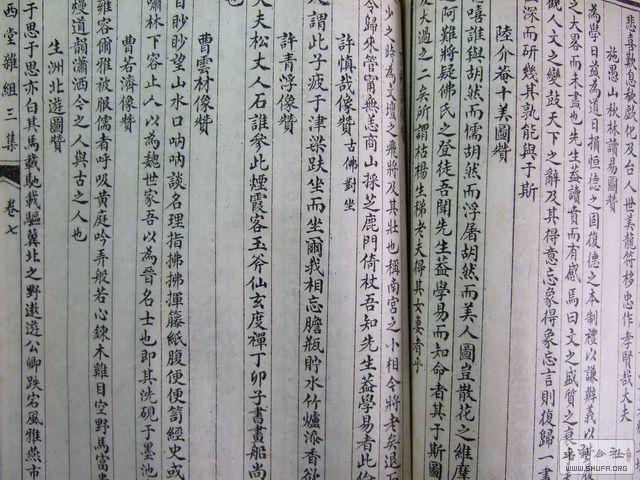 悲喜歎息移戲化及台人世美龍符移忠作孝賢哉大夫
施愚山秋林讀易圖贊
為學日益為道日損恒德之固復德之本制禮以謙辨義以
之大畧而未盡也先生益讀賁而有感焉曰文之盛質之衰
觀人文之變鼓天下之辭及其得意忘象得象忘言則復歸一畫
深而研幾其孰能與于斯
陸介菴十美圖贊
嘻誰與胡然而儒胡然而浮屠胡然而美人圖豈散花之維摩
阿難將疑佛氏之登徒吾聞先生益學易而知命者其于斯圖
大過之二矣所謂枯楊生稊老夫得其女妻者乎
少之時為文壇之飛將及其壯也稱南宮之小相今將老矣退
今歸來管甯無恙商山採芝鹿門倚杖吾知先生益學易者此
許慎哉像贊 古佛對坐
謂此子疲于津梁趺坐而坐爾我相忘膽瓶貯水竹爐添香欲
許青浮像贊
大夫松丈人石誰參此煙霞客玉斧仙玄度禪丁卯子書畫船尚
曹雲材像贊
目眇眇望山水口吶吶談名理指拂拂揮籐紙腹便便笥經史或
嘯林下容止人以為魏世家吾以為晉名士也即其洗硯于墨池
曹若濟像贊
雍容爾雅被服儒者呼吸黃庭吟弄般若心鍊木雞目空野馬富貴
熳道韻瀟洒今之人與古之人也
生洲北遊圖贊
于思于思亦白其馬載馳載驅冀北之野遨遊公卿跌宕風雅燕市
西堂雜組三集
卷七
WWW.SHUFA.ORG